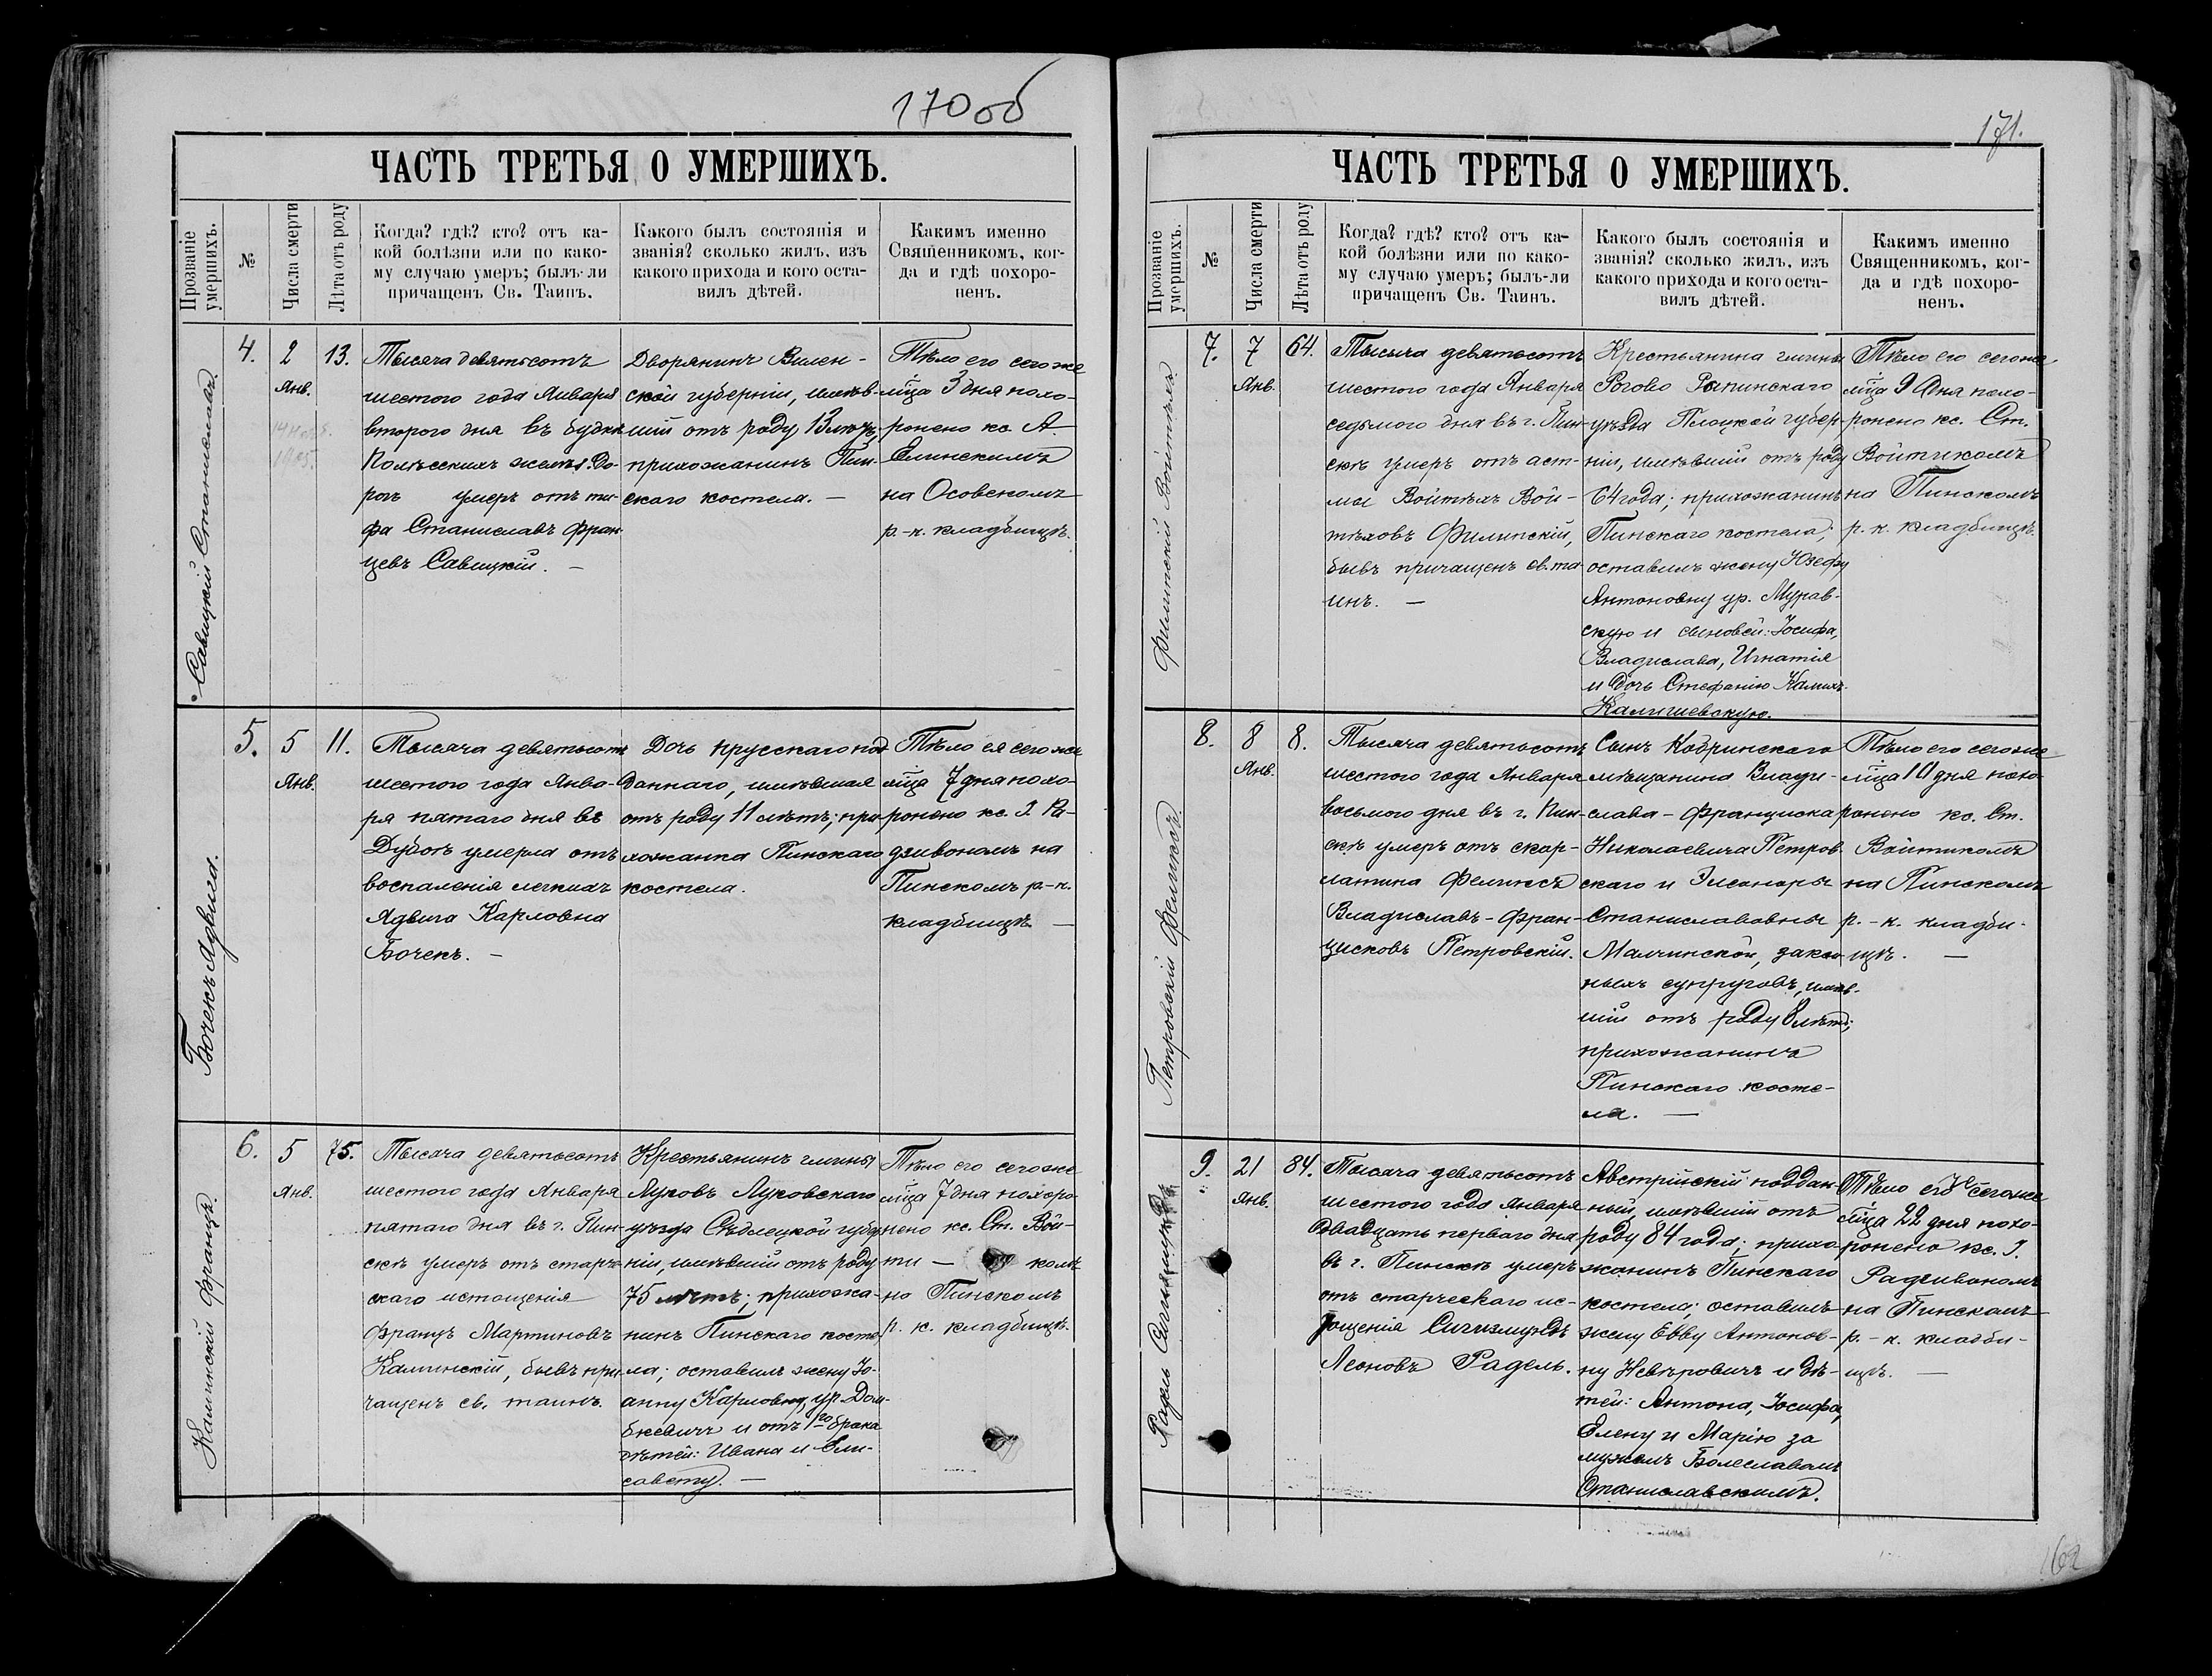 170 об
ЧАСТЬ ТРЕТЬЯ О УМЕРШИХЪ.
Прозваніе умершихъ.
№
Числа смерти
Лѣта отъ роду
Когда? гдѣ? кто? отъ ка-
кой болѣзни или по како-
му случаю умеръ; былъ-ли
причащенъ Св. Таинъ.
Какого былъ состоянія и
званія? сколько жилъ, изъ
какого прихода и кого оста-
вилъ дѣтей.
Какимъ именно
Священникомъ, ког-
да и гдѣ похоро-
ненъ.
Савицкій Станиславъ.
4.
2
Янв.
13.
Тысяча девятьсотъ
шестого года Января
второго дня въ будкѣ
Полѣсскихъ желѣз. до-
рогъ умеръ отъ ти-
фа Станиславъ Фран-
цевъ Савицкій. —
Дворянинъ Вилен-
ской губерніи, имѣв-
шій отъ роду 13 лѣтъ,
прихожанинъ Пин-
скаго костела. —
Тѣло его сего же
мѣца 3 дня похо-
ронено кс. А.
на Осовскомъ
р.-к. кладбищѣ.
Бочекъ Ядвига.
5.
5
Янв.
11.
Тысяча девятьсотъ
шестого года Янва-
ря пятаго дня въ
умерла отъ
воспаленія легкихъ
Ядвига Карловна
Бочекъ. —
Дочь прусскаго под-
даннаго, имѣвшая
отъ роду 11 лѣтъ; при-
хожанка Пинскаго
костела.
Тѣло ея сего же
мѣца 7 дня похо-
ронено кс. I. Ра-
дзивономъ на
Пинскомъ р.-к.
кладбищѣ. —
Каминскій Францъ.
6.
5
Янв.
75.
Тысяча девятьсотъ
шестого года Января
пятаго дня въ г. Пин-
скѣ умеръ отъ старче-
скаго истощенія
Францъ Мартиновъ
Каминскій, бывъ при-
чащенъ св. таинъ.
Крестьянинъ гмины
Луковъ Луковскаго
уѣзда Сѣдлецкой губер-
ніи, имѣвшій отъ роду
75 лѣтъ; прихожа-
нинъ Пинскаго косте-
ла; оставилъ жену Іо-
анну Карловну ур. Дом-
бкевичъ и отъ 1го брака
дѣтей: Ивана и Ели-
савету. —
Тѣло его сего же
мѣца 7 дня похоро-
нено кс. Ст. Вой-
ти — комъ
на Пинскомъ
р. к. кладбищѣ.
171.
ЧАСТЬ ТРЕТЬЯ О УМЕРШИХЪ.
Прозваніе умершихъ.
№
Числа смерти
Лѣта отъ роду
Когда? гдѣ? кто? отъ ка-
кой болѣзни или по како-
му случаю умеръ; былъ-ли
причащенъ Св. Таинъ.
Какого былъ состоянія и
званія? сколько жилъ, изъ
какого прихода и кого оста-
вилъ дѣтей.
Какимъ именно
Священникомъ, ког-
да и гдѣ похоро-
ненъ.
Филипскій Войтѣхъ.
7.
7
Янв.
64.
Тысяча девятьсотъ
шестого года Января
седьмого дня въ г. Пин-
скѣ умеръ отъ аст-
мы Войтѣхъ Вой-
тѣховъ Филипскій,
бывъ причащенъ св. та-
инъ. —
Крестьянина гмины
Рогово Рыпинскаго
уѣзда Плоцкой губер-
ніи, имѣвшій отъ роду
64 года; прихожанинъ
Пинскаго костела;
оставилъ жену Юзефу
Антоновну ур. Мурав-
скую и сыновей: Іосифа,
Владислава, Игнатія
и дочь Стефанію
Калишевскую.
Тѣло его сего же
мѣца 9 дня похо-
ронено кс. Ст.
Войтикомъ
на Пинскомъ
р. к. кладбищѣ.
Петровскій Феликсъ.
8.
8
Янв.
8.
Тысяча девятьсотъ
шестого года Января
восьмого дня въ г. Пин-
скѣ умеръ отъ скар-
латина Феликсъ
Владиславъ-Фран-
цисковъ Петровскій.
Сынъ Кобринскаго
мѣщанина Влади-
слава-Франциска
Николаевича Петров-
скаго и Элеоноры
Станиславовны
Малчинской, закон-
ныхъ супруговъ, имѣв-
шій отъ роду 8 лѣтъ;
прихожанинъ
Пинскаго косте-
ла. —
Тѣло его сего же
мѣца 10 дня похо-
ронено кс. Ст.
Войтикомъ
на Пинскомъ
р.-к. кладби-
щѣ. —
Радель Сигизмундъ
9.
21
Янв.
84.
Тысяча девятьсотъ
шестого года Января
двадцать перваго дня
въ г. Пинскѣ умеръ
отъ старческаго ис-
тощенія Сигизмундъ
Леоновъ Радель.
Австрійскій поддан-
ный, имѣвшій отъ
роду 84 года; прихо-
жанинъ Пинскаго
костела; оставилъ
жену Евву Антонов-
ну Невѣровичъ и дѣ-
тей: Антона, Іосифа,
Елену и Марію за
мужемъ Болеславомъ
Станиславскимъ.
Тѣло его сего же
мѣца 22 дня похо-
ронено кс. I.
Радзивономъ
на Пинскомъ
р.-к. кладби-
щѣ. —
162